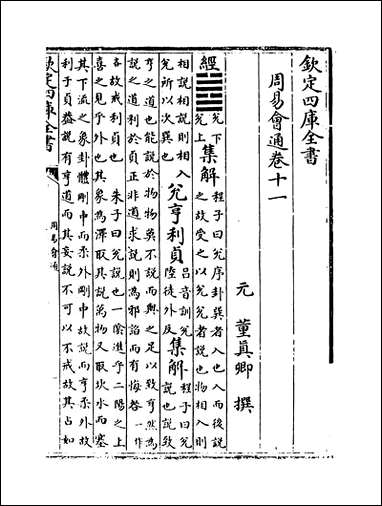 欽定四庫全書
周易會通卷十一
元 董真卿 撰
經 兌下兌上 集解 程子曰兌序卦巽者入也入而後說
之故受之以兌兌者說也物相入則
相說相說則相入
兌所以次巽也 兌亨利貞 呂音訓兌
陸徒外反 集解 程子曰兌
說也說致
亨之道也能說於物物莫不說而與之足以致亨然為
說之道利於貞正非道求說則為邪諂而有悔咎一作
吝故戒利貞也 朱子曰兌說也一陰進乎二陽之上
喜之見乎外也其象為澤取其說萬物又取坎水而塞
其下流之象卦體剛中而柔外剛中故說而亨柔外故
利於貞蓋說有亨道而其妄說不可以不戒故其占如
欽定四庫全書
周易會通